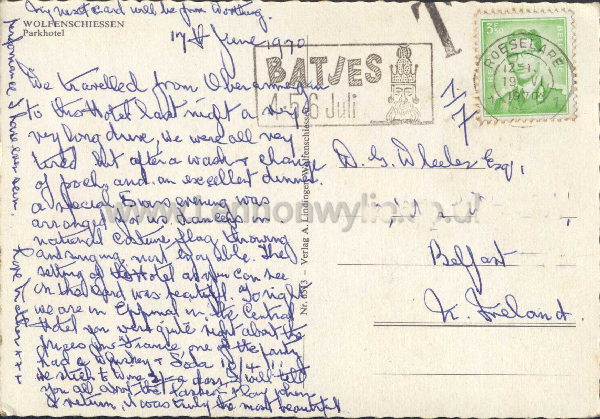 My next card will be from Worthing.
WOLFENSCHIESSEN
Parkhotel
17th June 1970
We travelled from Oberammergau
to this Hotel last night a very
very long drive, we were all very
tired but after a wash & change
of frock, and an excellent dinner
a special Swiss evening was
arranged for us, dancers in
national costume, flag throwing
and singing, most enjoyable. The
setting of the Hotel as you can see
on the card was beautiful. Tonight
we are in Epernal in the Central
Hotel you were quite right about the
prices in France, one of the party
had a whiskey & Soda
we stick to wine 3/- a glass I will tell
you all about the Passion Play when
I return, it was truly the most beautiful
performance I have ever seen.
Love xxx
Nr. 6513 – Verlag A. Lindinger, Wolfenschiessen
T
BATJES
4-5-6 Juli
ROESELARE
19
1970
3F50
D. G. Wheeler Esq.,
Belfast
N. Ireland.
www.lennonwylie.co.uk